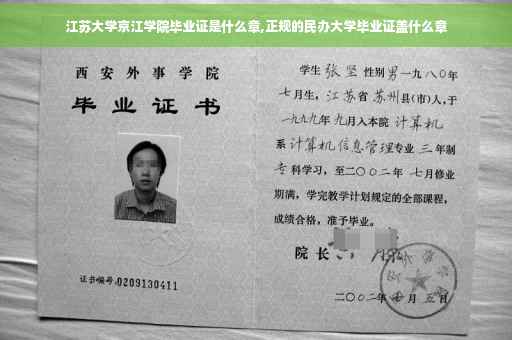 江苏大学京江学院毕业证是什么章,正规的民办大学毕业证盖什么章
西安外事学院
毕业证书
证书编号:0209130411
学生张坚性别男一九八〇年
七月生，江苏省苏州县(市)人,于
一九九九年九月入本院计算机
系计算机信息管理专业三年制
专科学习，至二〇〇二年七月修业
期满，学完教学计划规定的全部课程，
成绩合格，准予毕业。
院长
二〇〇二年 月五日